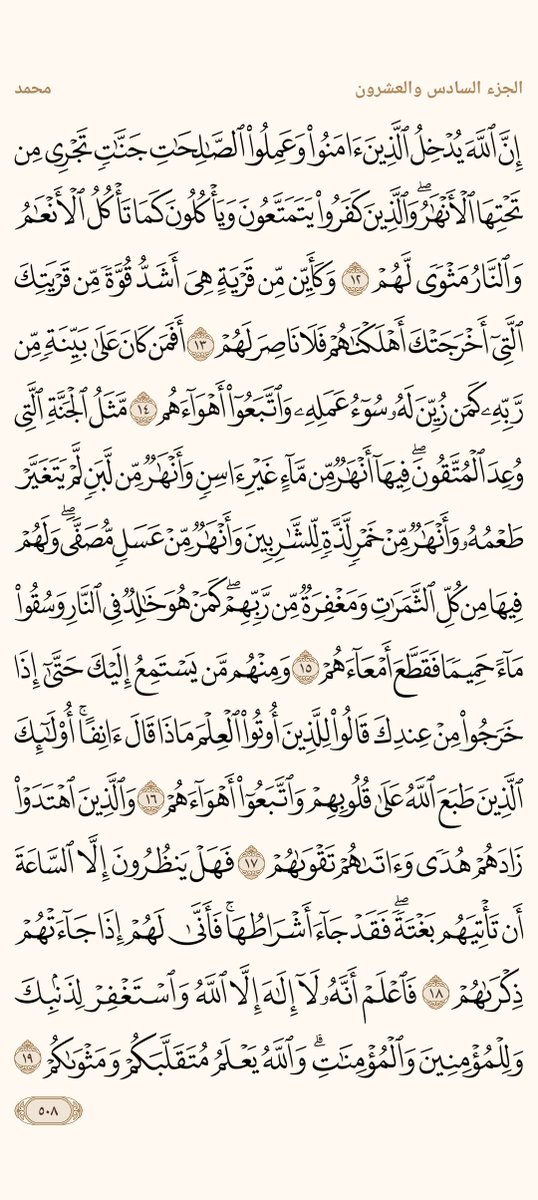 الجزء السادس والعشرون
محمد
إِنَّ ٱللَّهَ يُدْخِلُ ٱلَّذِينَ ءَامَنُوا۟ وَعَمِلُوا۟ ٱلصَّـٰلِحَـٰتِ جَنَّـٰتٍ تَجْرِى مِن
تَحْتِهَا ٱلْأَنْهَـٰرُ ۖ وَٱلَّذِينَ كَفَرُوا۟ يَتَمَتَّعُونَ وَيَأْكُلُونَ كَمَا تَأْكُلُ ٱلْأَنْعَـٰمُ
وَٱلنَّارُ مَثْوًى لَّهُمْ ١٢ وَكَأَيِّن مِّن قَرْيَةٍ هِىَ أَشَدُّ قُوَّةً مِّن قَرْيَتِكَ
ٱلَّتِىٓ أَخْرَجَتْكَ أَهْلَكْنَـٰهُمْ فَلَا نَاصِرَ لَهُمْ ١٣ أَفَمَن كَانَ عَلَىٰ بَيِّنَةٍ مِّن
رَّبِّهِۦ كَمَن زُيِّنَ لَهُۥ سُوٓءُ عَمَلِهِۦ وَٱتَّبَعُوٓا۟ أَهْوَآءَهُم ١٤ مَّثَلُ ٱلْجَنَّةِ ٱلَّتِى
وُعِدَ ٱلْمُتَّقُونَ ۖ فِيهَآ أَنْهَـٰرٌ مِّن مَّآءٍ غَيْرِ ءَاسِنٍ وَأَنْهَـٰرٌ مِّن لَّبَنٍ لَّمْ يَتَغَيَّرْ
طَعْمُهُۥ وَأَنْهَـٰرٌ مِّنْ خَمْرٍ لَّذَّةٍ لِّلشَّـٰرِبِينَ وَأَنْهَـٰرٌ مِّنْ عَسَلٍ مُّصَفًّى ۖ وَلَهُمْ
فِيهَا مِن كُلِّ ٱلثَّمَرَٰتِ وَمَغْفِرَةٌ مِّن رَّبِّهِمْ ۖ كَمَنْ هُوَ خَـٰلِدٌ فِى ٱلنَّارِ وَسُقُوا۟
مَآءً حَمِيمًا فَقَطَّعَ أَمْعَآءَهُمْ ١٥ وَمِنْهُم مَّن يَسْتَمِعُ إِلَيْكَ حَتَّىٰٓ إِذَا
خَرَجُوا۟ مِنْ عِندِكَ قَالُوا۟ لِلَّذِينَ أُوتُوا۟ ٱلْعِلْمَ مَاذَا قَالَ ءَانِفًا ۚ أُو۟لَـٰٓئِكَ
ٱلَّذِينَ طَبَعَ ٱللَّهُ عَلَىٰ قُلُوبِهِمْ وَٱتَّبَعُوٓا۟ أَهْوَآءَهُمْ ١٦ وَٱلَّذِينَ ٱهْتَدَوْا۟
زَادَهُمْ هُدًى وَءَاتَىٰهُمْ تَقْوَىٰهُمْ ١٧ فَهَلْ يَنظُرُونَ إِلَّا ٱلسَّاعَةَ
أَن تَأْتِيَهُم بَغْتَةً ۖ فَقَدْ جَآءَ أَشْرَاطُهَا ۚ فَأَنَّىٰ لَهُمْ إِذَا جَآءَتْهُمْ
ذِكْرَىٰهُمْ ١٨ فَٱعْلَمْ أَنَّهُۥ لَآ إِلَـٰهَ إِلَّا ٱللَّهُ وَٱسْتَغْفِرْ لِذَنۢبِكَ
وَلِلْمُؤْمِنِينَ وَٱلْمُؤْمِنَـٰتِ ۗ وَٱللَّهُ يَعْلَمُ مُتَقَلَّبَكُمْ وَمَثْوَىٰكُمْ ١٩
٥٠٨